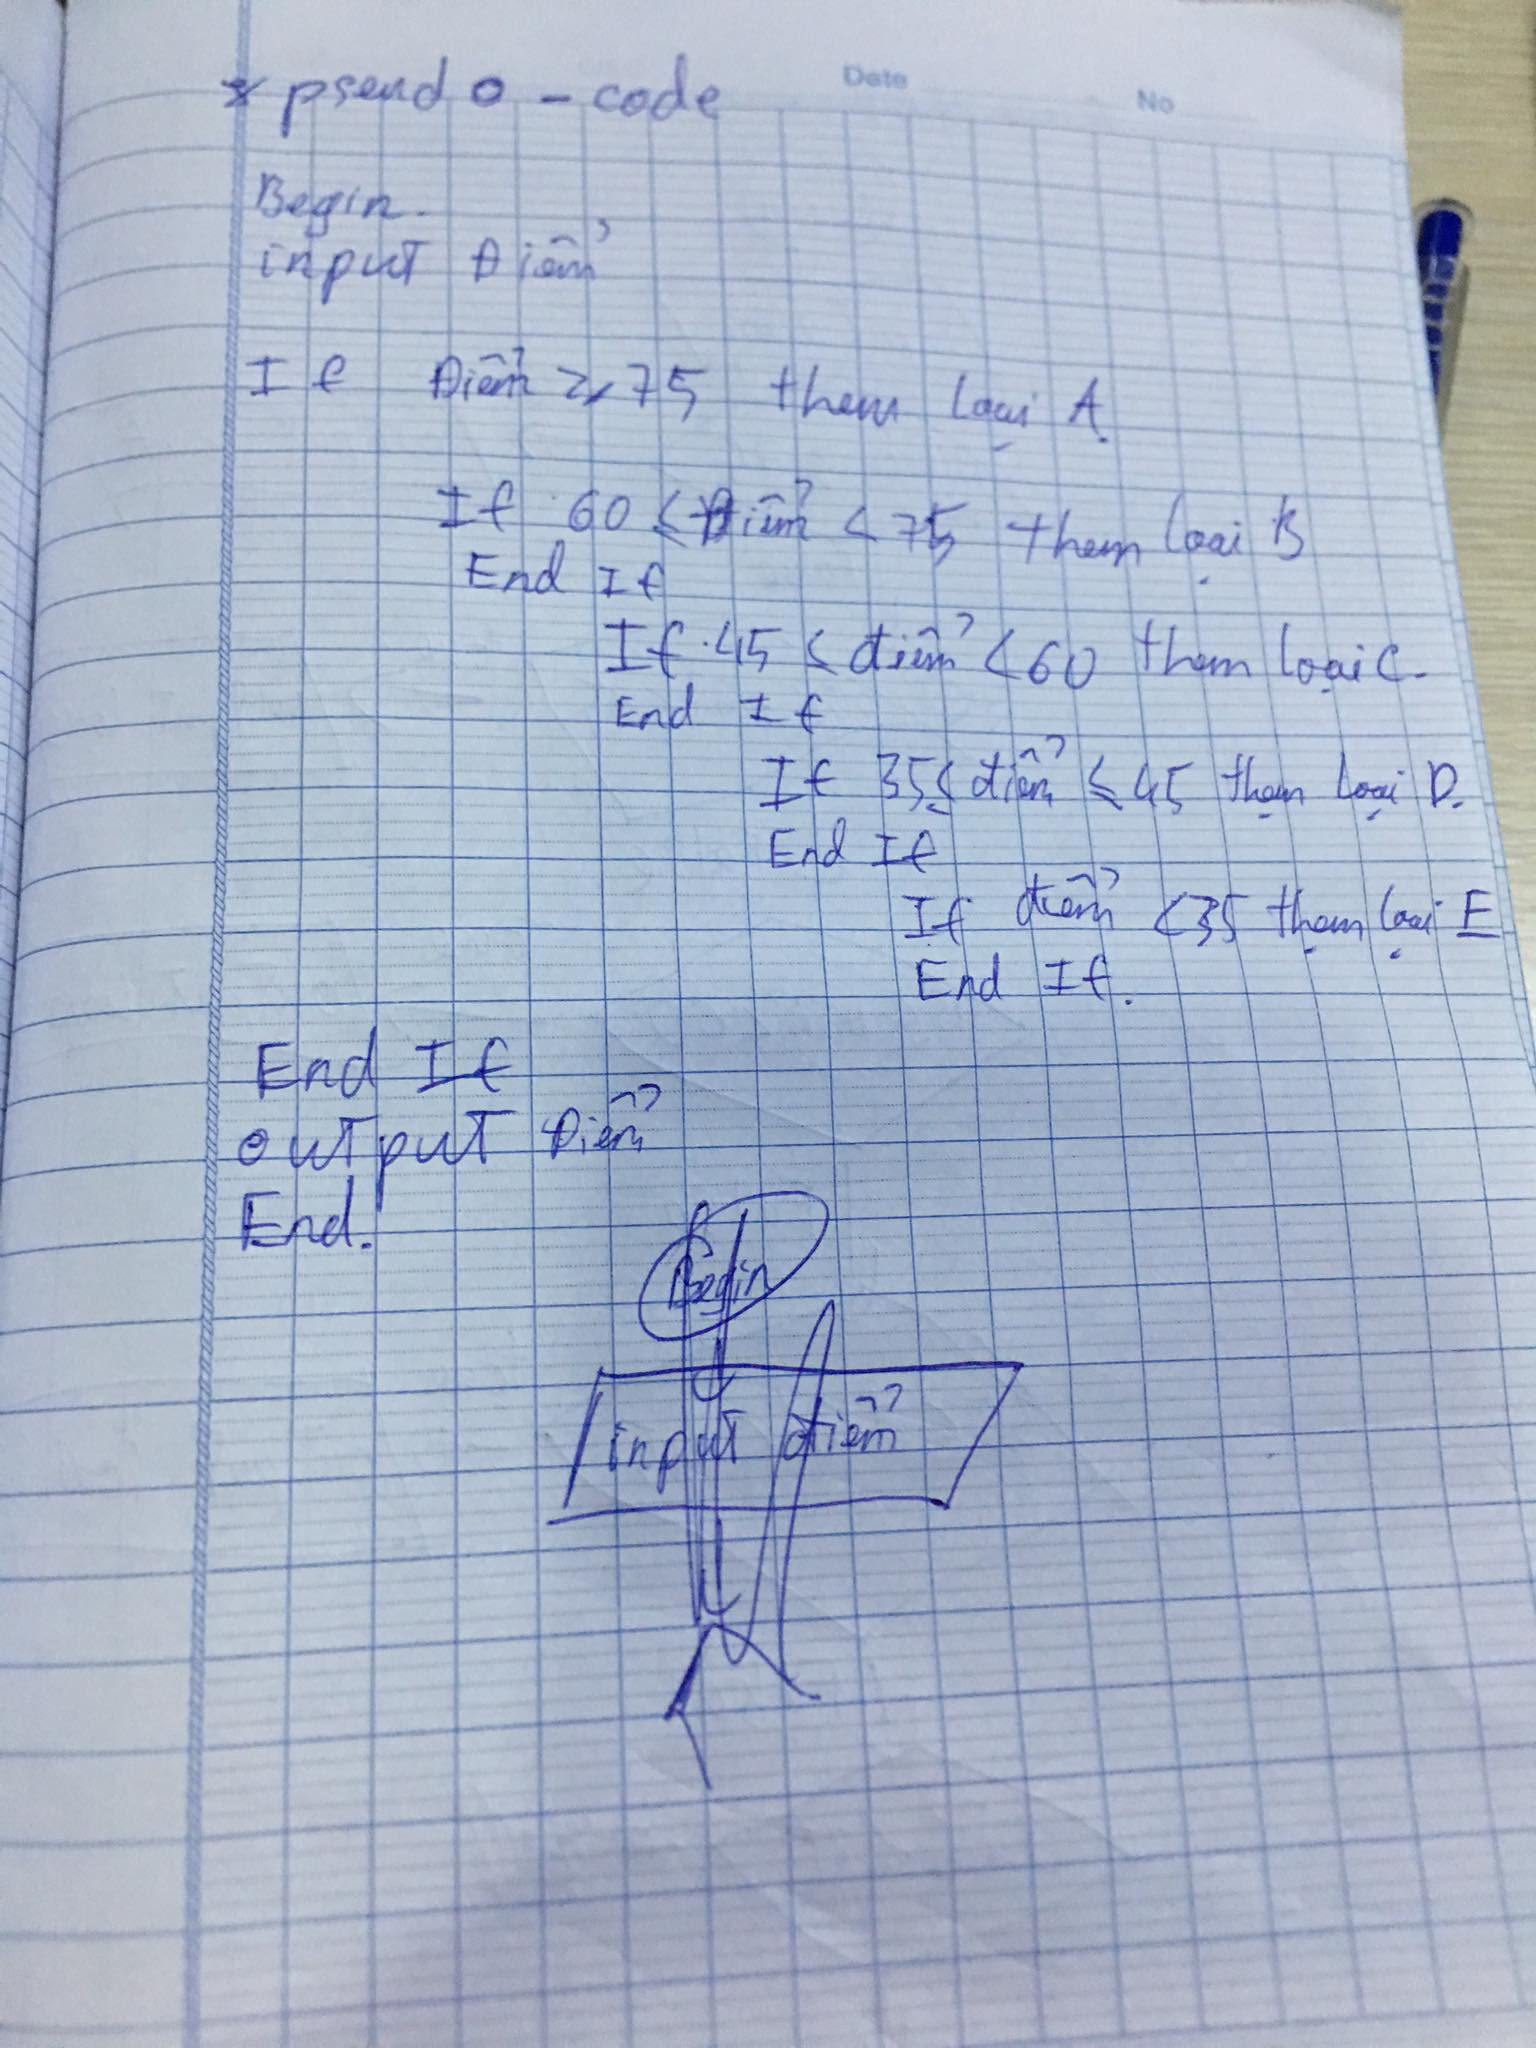 * pseudo - code
Date
No
Begin.
input Điểm
If Điểm ≥ 75 them loại A.
If 60 ≤ Điểm < 75 them loại B
End If
If 45 ≤ điểm < 60 them loại C.
End If
If 35 ≤ điểm ≤ 45 them loại D.
End If
If điểm < 35 them loại E
End If.
End If
output Điểm
End.
Begin
input điểm